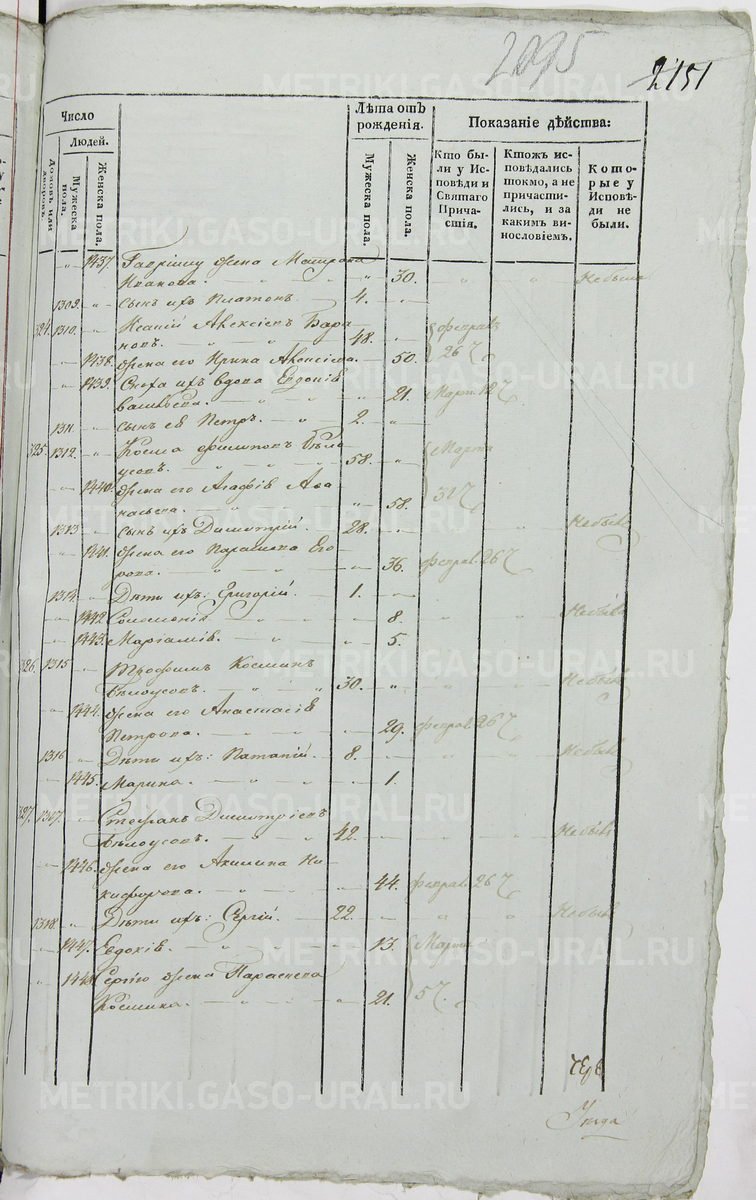 2095
2151
Число
Людей.
Домовъ или дворовъ.
Мужеска пола.
Женска пола.
Лѣта отъ рожденія.
Мужеска пола.
Женска пола.
Показаніе дѣйства:
Кто бы-
ли у Ис-
повѣди и
Святаго
Прича-
стія.
Ктожъ ис-
повѣдались
токмо, а не
причасти-
лись, и за
какимъ ви-
нословіемъ.
Кото-
рые у
Исповѣ-
ди не
были.
1437. Гаврилу жена Матрона
Иванова. 30. Небыла
1309. сынъ ихъ Платонъ 4.
324. 1310. Исакій Алексіевъ Бара
новъ. 48. феврал
1438. жена его Ирина Алексіева. 50. 26
1439. Сноха ихъ вдова Евдокія
Васильева. 21. Март 18
1311. сынъ ея Петръ. 2.
325. 1312. Косма Филиповъ Бѣло
усовъ. 58. Марта
1440. жена его Агафія Афа
насьева. 58. 31
1313. сынъ ихъ Димитрій. 28. Небылъ
1441. жена его Параскева Его
рова. 36. феврал 26
1314. Дѣти ихъ: Григорій. 1.
1442. Соломонія 8. Небыла
1443. Маріамія. 5.
326. 1315 Трофимъ Косминъ
Бѣлоусовъ. 30. Небылъ
1444. жена его Анастасія
Петрова. 29. феврал 26
1316 Дѣти ихъ: Потапій. 8. Небылъ
1445. Марина. 1.
327. 1317. Стефанъ Димитріевъ
Бѣлоусовъ. 42. Небылъ
1446. жена его Акилина Ни
кифорова. 44. феврал 26
1318. Дѣти ихъ: Сергій. 22. Небылъ
1447. Евдокія. 13. Марта
1448. Сергію жена Параскева
Космина. 21. 5
METRIKI.GASO-URAL.RU